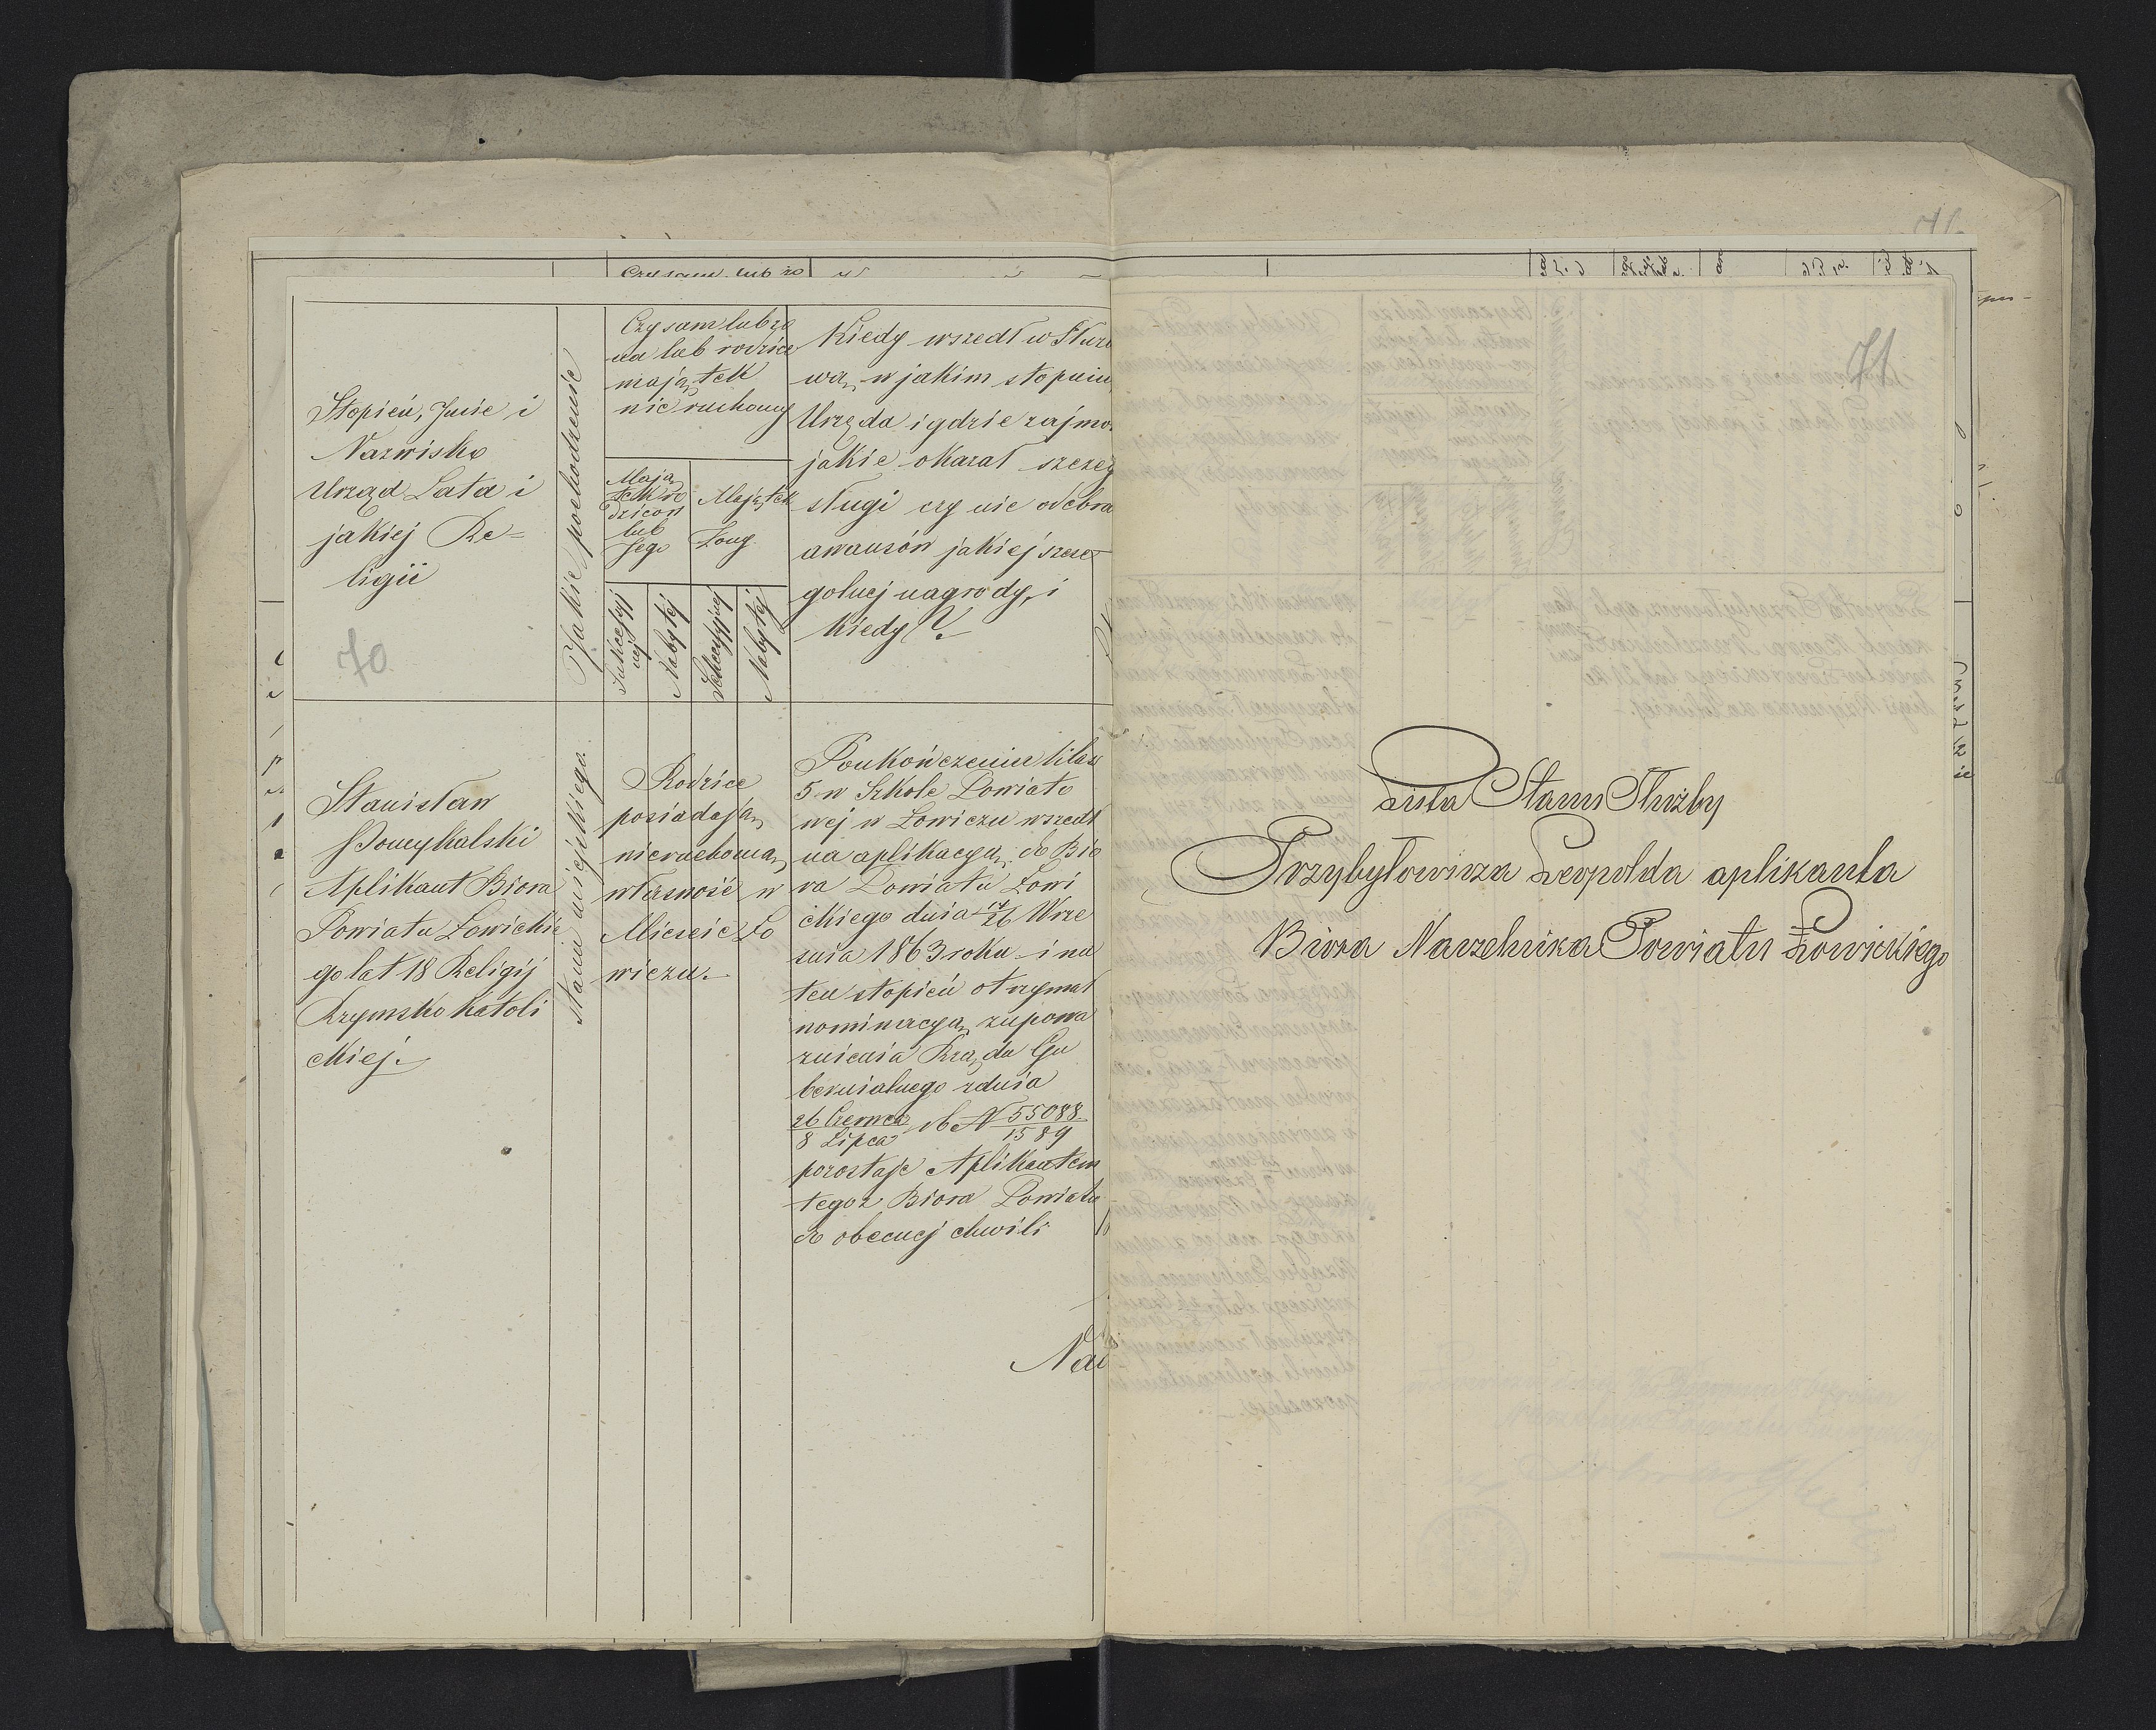 Czy sam lub żo
Stopień, Imie i
Nazwisko
Urząd Lata i
jakiej Re=
ligii
70
Jakie pochodzenie
Czy sam lub żo
na lub rodzice
mają majątek
nieruchomy
Mają
tek ro
dziców
lub
Jego
Majątek
Żony
Sukcessyj
nej
Nabytej
Sukcessyjnej
Nabytej
Kiedy wszedł w Służ
wą, w jakim stopniu
Urzęda i gdzie zajmo
jakie okazał szczeg
sługi czy nie odebra
awansów jakiej szcze
golnej nagrody, i
kiedy?
Stanisław
Aplikant Biora
Powiatu Łowickie
go lat 18 Religij
Rzymsko Katoli
ckiej.
Stanu miejskiego.
Rodzice
posiadają
nieruchomą
własność w
Mieście Ło
wiczu.
Poukończeniu klas
5 w Szkole Powiato
wej w Łowiczu wszedł
na aplikacyą do Bió
ra Powiatu Łowi
ckiego dnia 14/26 Wrze
śnia 1863 roku i na
ten stopień otrzymał
nominacyą z upowa
żnienia Rządu Gu
bernialnego z dnia
26 Czerwca / 8 Lipca do N 55088/1589
pozostaje Aplikantem
tegoż Biora Powiatu
do obecnej chwili
Nac
71
71
Lista Stanu Służby
Przybyłowicza Leopolda aplikanta
Biora Naczelnika Powiatu Łowickiego